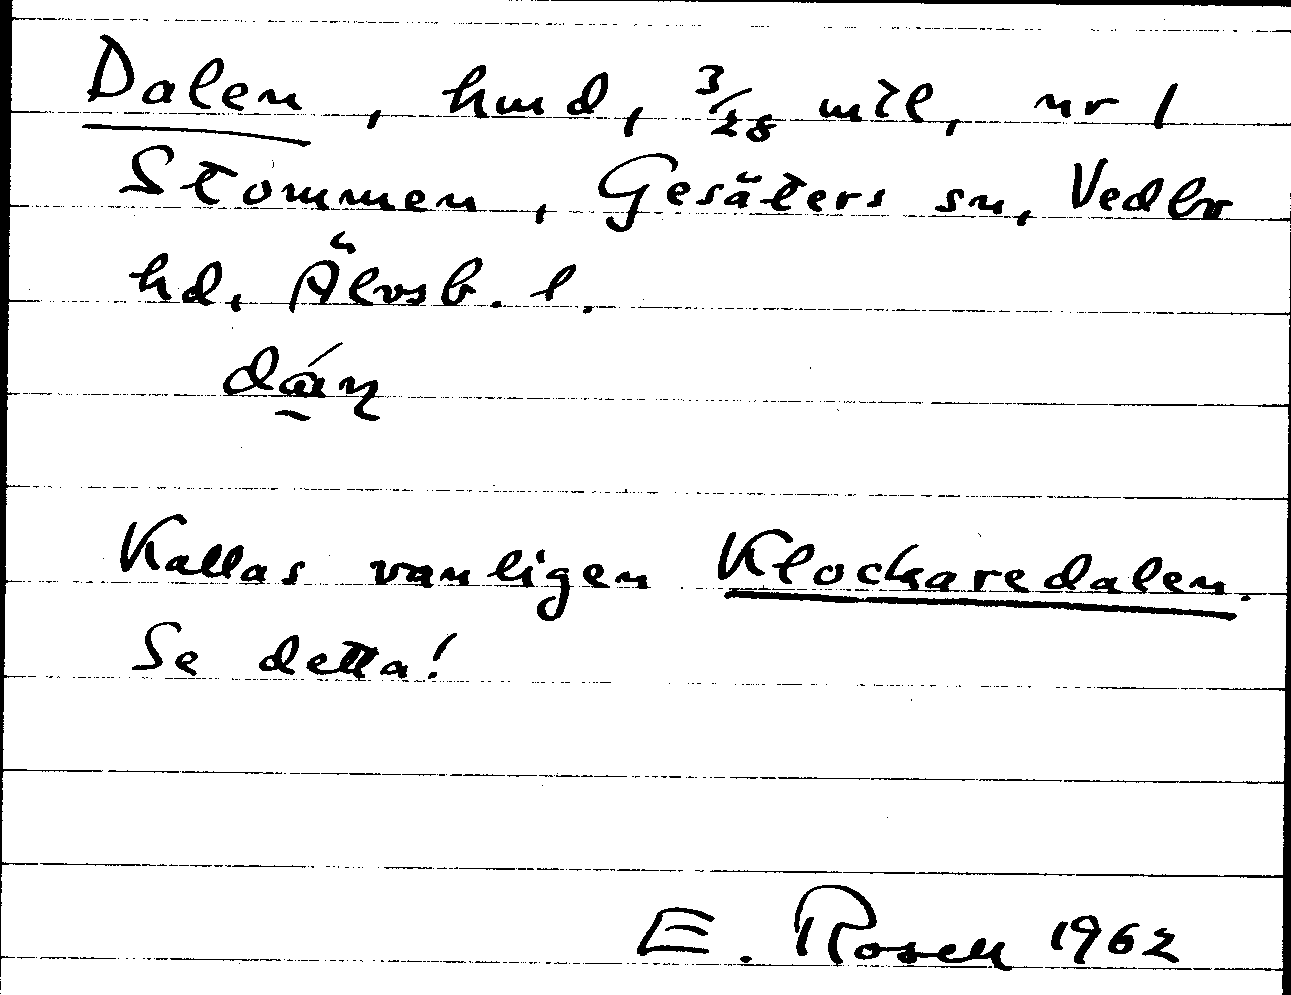 Dalen, hmd, 3/28 mtl, nr 1
Stommen, Gesäters sn, Vedbo
hd, Älvsb. l.
Kallas vanligen Klockaredalen.
Se detta!
E. Rosell 1962